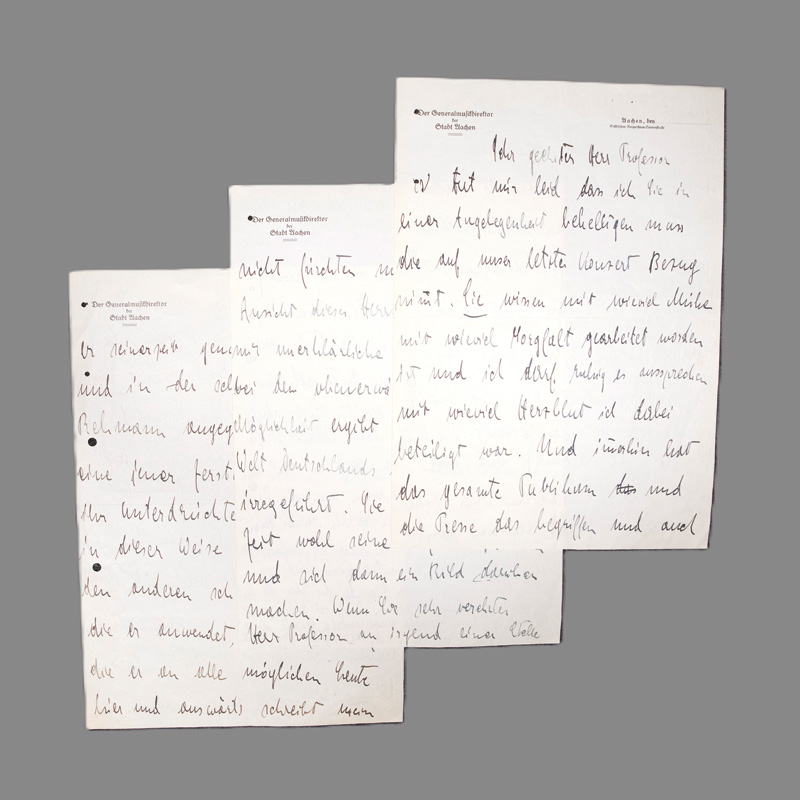 Der Generalmusikdirektor
der
Stadt Aachen
Aachen, den
Sehr geehrter Herr Professor
es tut mir leid dass ich Sie in
einer Angelegenheit behelligen muss
die auf unser letztes Konzert Bezug
nimmt. Sie wissen mit wieviel Mühe
mit wieviel Sorgfalt gearbeitet worden
ist und ich darf ruhig es aussprechen
mit wieviel Herzblut ich dabei
beteiligt war. Und immerhin hat
das gesamte Publikum das und
die Presse das begriffen und auch
Der Generalmusikdirektor
der
Stadt Aachen
nicht fürchten
Ansicht dieses Herr
mir unerklärliche
bei den
Möglichkeit ergibt
Welt Deutschlands
irregeführt. Sie
Zeit wohl seine
und sich dann ein Bild darüber
machen. Wenn Sie sehr verehrter
Herr Professor an irgend einer Stelle
Der Generalmusikdirektor
der
Stadt Aachen
er seinerzeit
und in der
Rehmann
eine jener
ihr unterdrückte
in dieser Weise
den anderen
die er anwendet,
die er an alle möglichen Leute
hier und auswärts schreibt